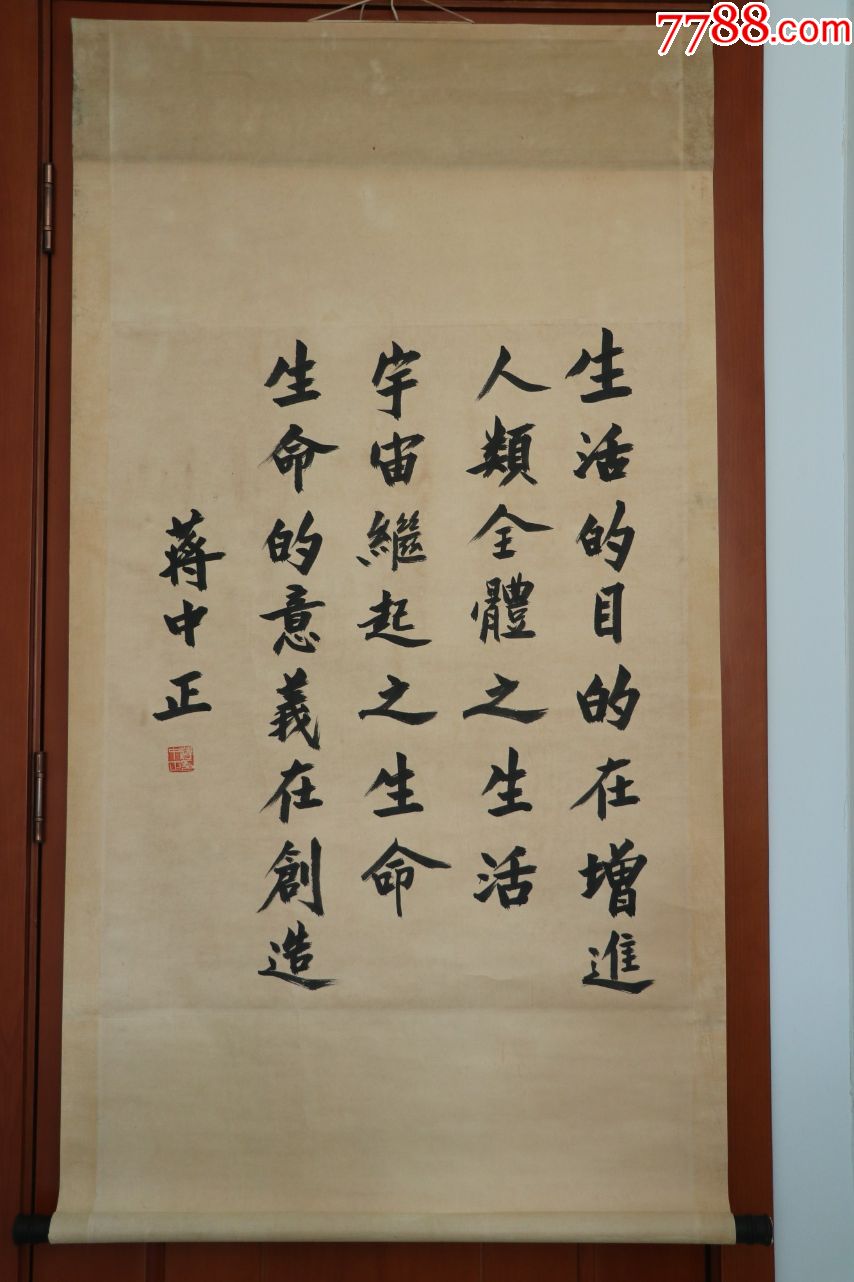 7788.com
生活的目的在增進
人類全體之生活
宇宙繼起之生命
生命的意義在創造
蔣中正